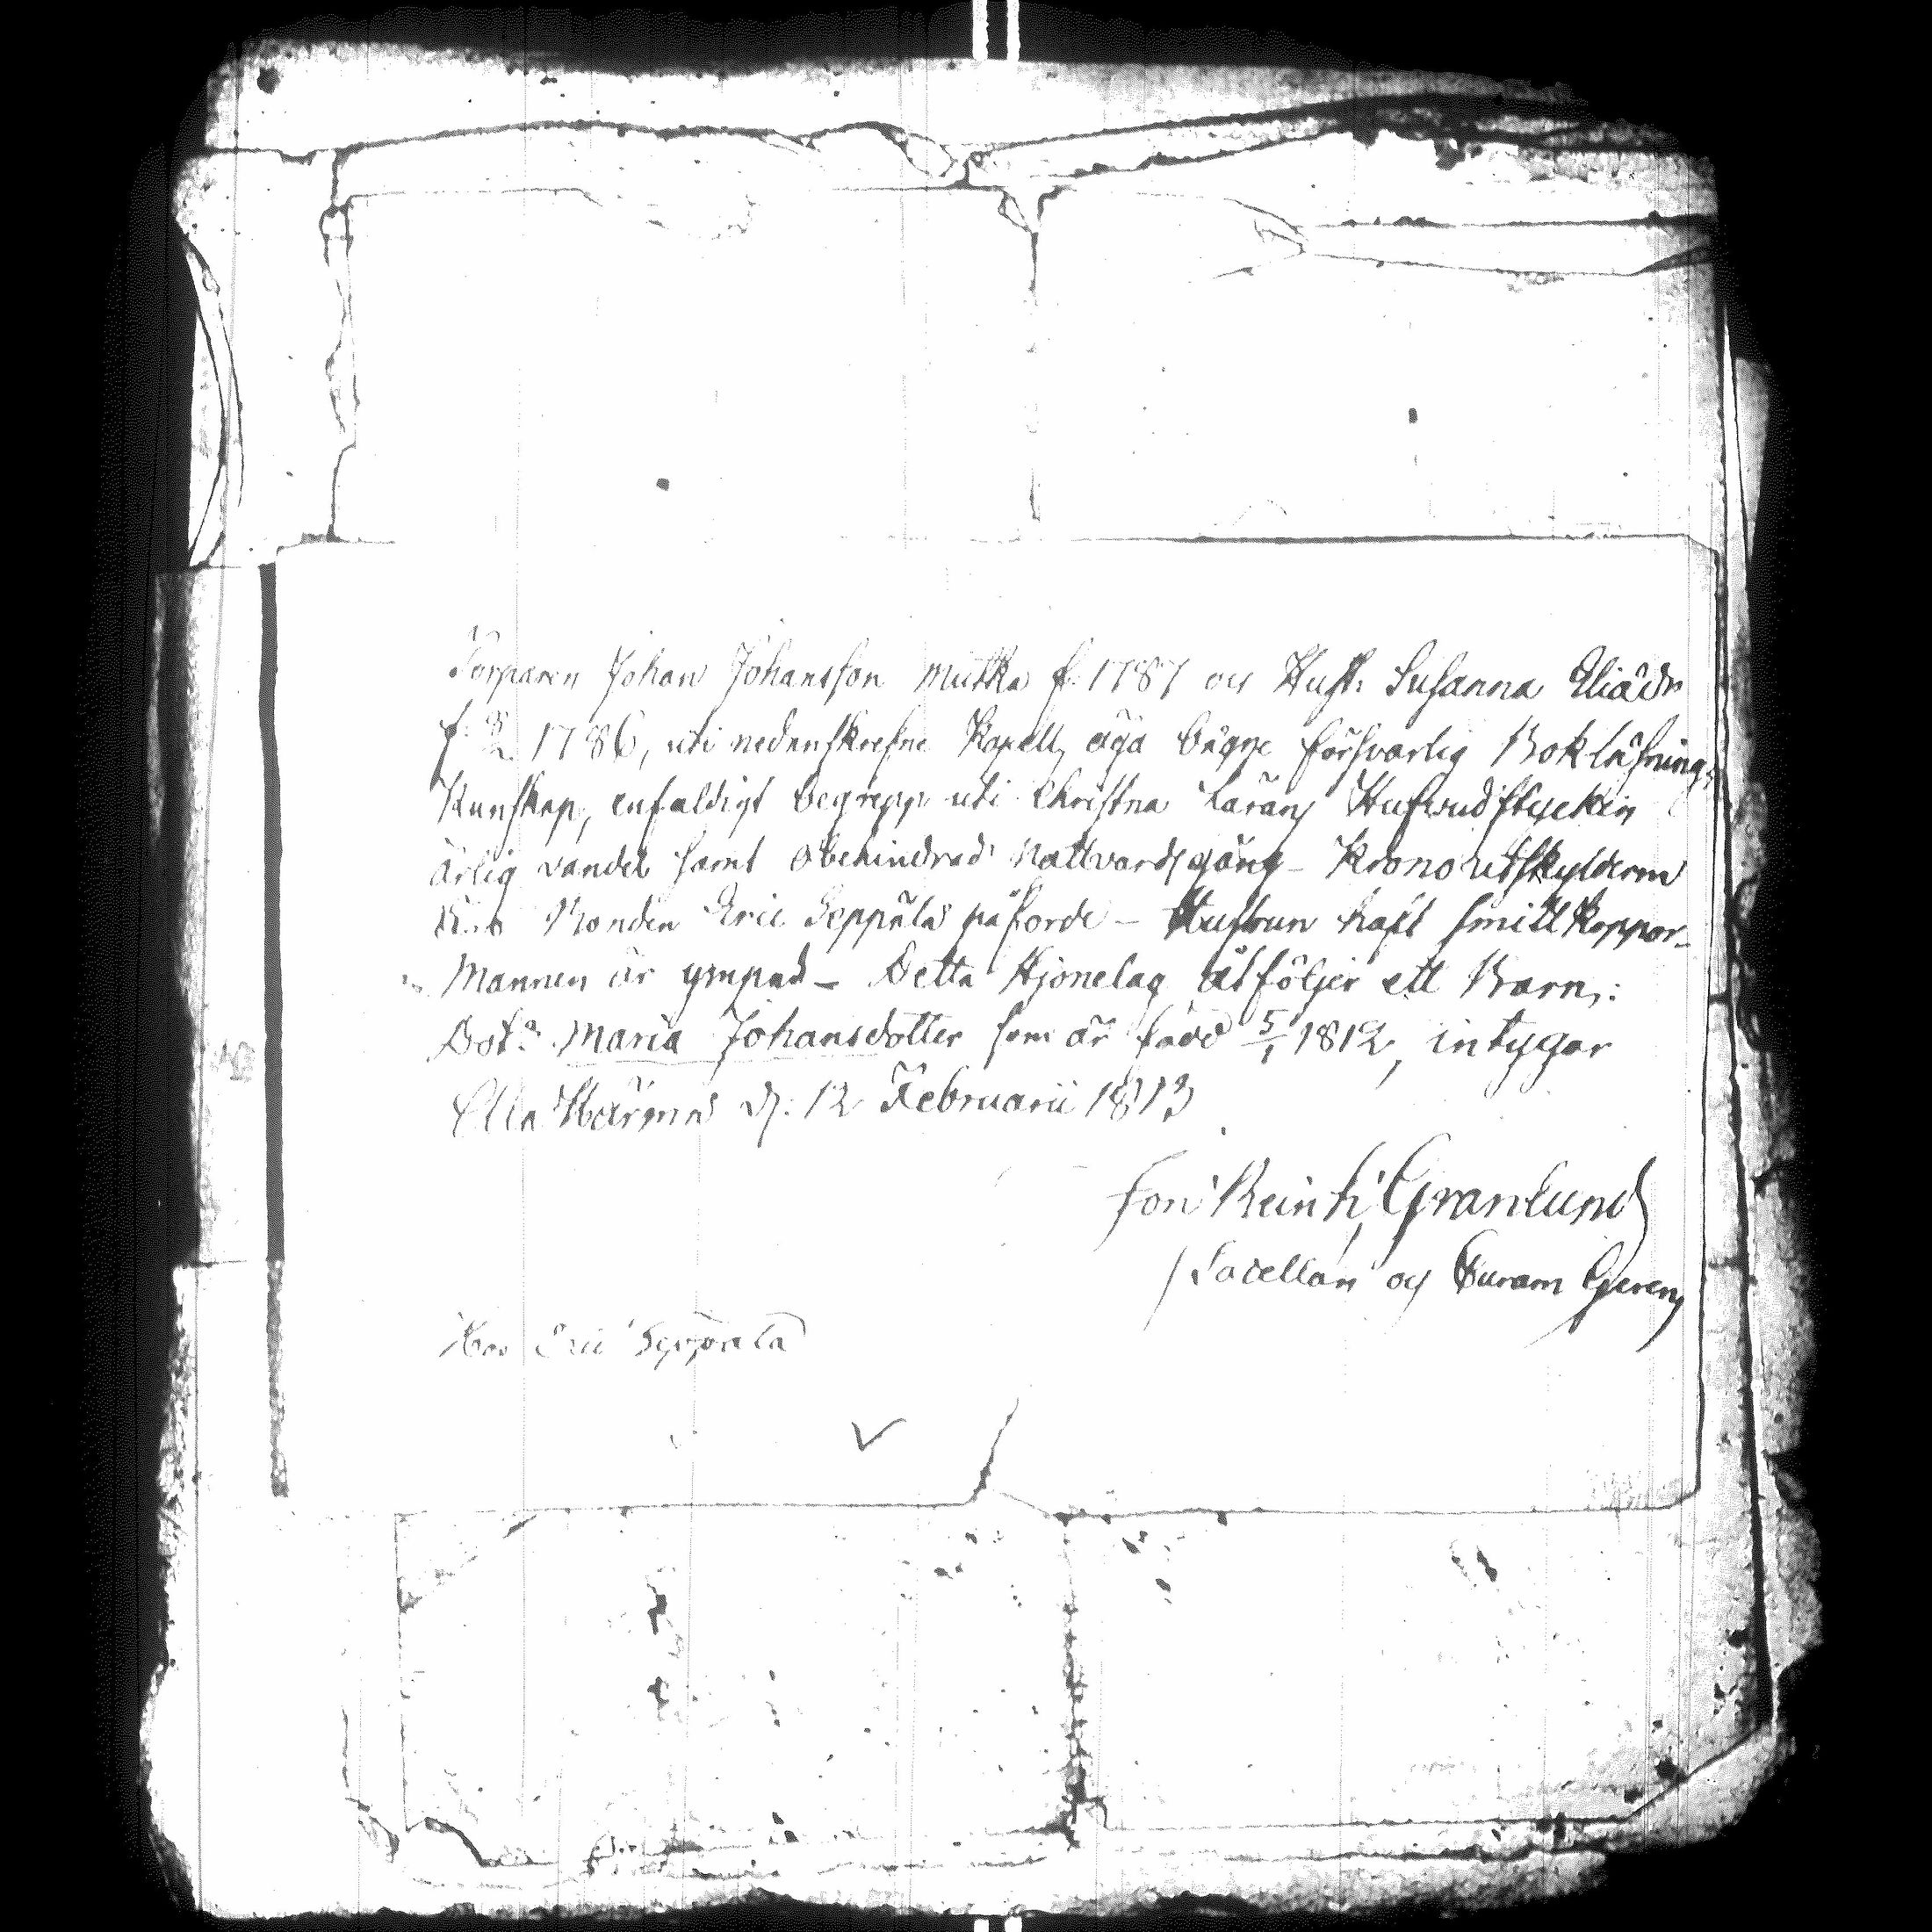 Torparen Johan Johansson Mutka f. 1787 och Hust: Susanna Eliæd:r
f: 1786, uti nedanskrefne Kapell, äga bägge försvarlig Bokläsnings
Kunskap, enfaldigt begrepp uti Christna Lärans Hufvudstycken
ärlig vandel samt obehindrad Nattvardsgång - Krono utskylderne
Bonden Eric Seppälä påförde - Hustrun haft smittkoppor -
Mannen är ympad - Detta Hjonelag åtföljer ett Barn:
Dot: Maria Johansdotter som är född 5/1 1812, intygar
Ylla Härmä d: 12 Februarii 1813
Granlund
/Sacellan och Curam Gerens
Hos Eric Seppälä